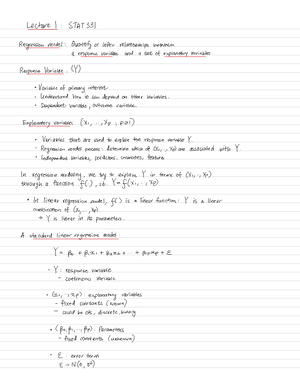 Lecture 1 : STAT 331
Regression model : Quantify or infer relationships between
a response variable and a set of explanatory variables
Response Variable : (Y)
• Variable of primary interest
• Understand how it can depend on other variables.
• Dependent variable, outcome variable.
Explanatory variables (x₁, ..., xp ; p≥1)
• Variables that are used to explain the response variable Y.
• Regression model process: determine which of (x₁, .., xp) are associated with Y.
• Independent variables, predictors, covariates, feature
In regression modeling, we try to explain Y in terms of (x₁,.., xp)
through a function f( ), s.t. Y = f(x₁, ..., xp)
• In linear regression model, f( ) is a linear function : Y is a linear
combination of (x₁, ..., xp)
→ Y is linear in its parameters.
A standard linear regression model
Y = β₀ + β₁x₁ + β₂x₂ + ... + βpxp + ε
• Y : response variable
- continuous variable
• (x₁, .., xp) : explanatory variables
- fixed constants (known)
- could be cts, discrete, binary
• (β₀, β₁, .., βp) : Parameters
- fixed constants (unknown)
• ε : error term
ε ~ N(0, σ²)